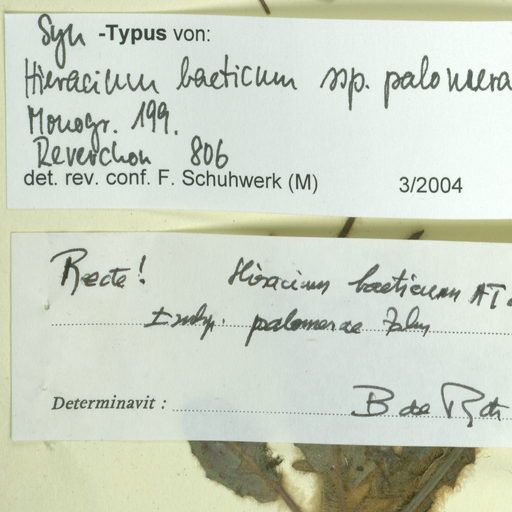 Syn -Typus von:
Hieracium baeticum ssp. palomera
Monogr. 199.
Reverchon 806
det. rev. conf. F. Schuhwerk (M)
3/2004
Recte! Hieracium baeticum AT
palomerae Zahn
Determinavit : B de